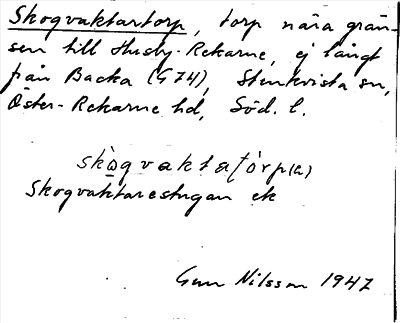 Skogvaktartorp, torp nära grän-
sen till Husby-Rekarne, ej långt
från Backa (G74), Stenkvista sn,
Öster-Rekarne hd, Söd. l.
skògvaktatórp(a)
Skogvaktarestugan ek
Gun Nilsson 1947